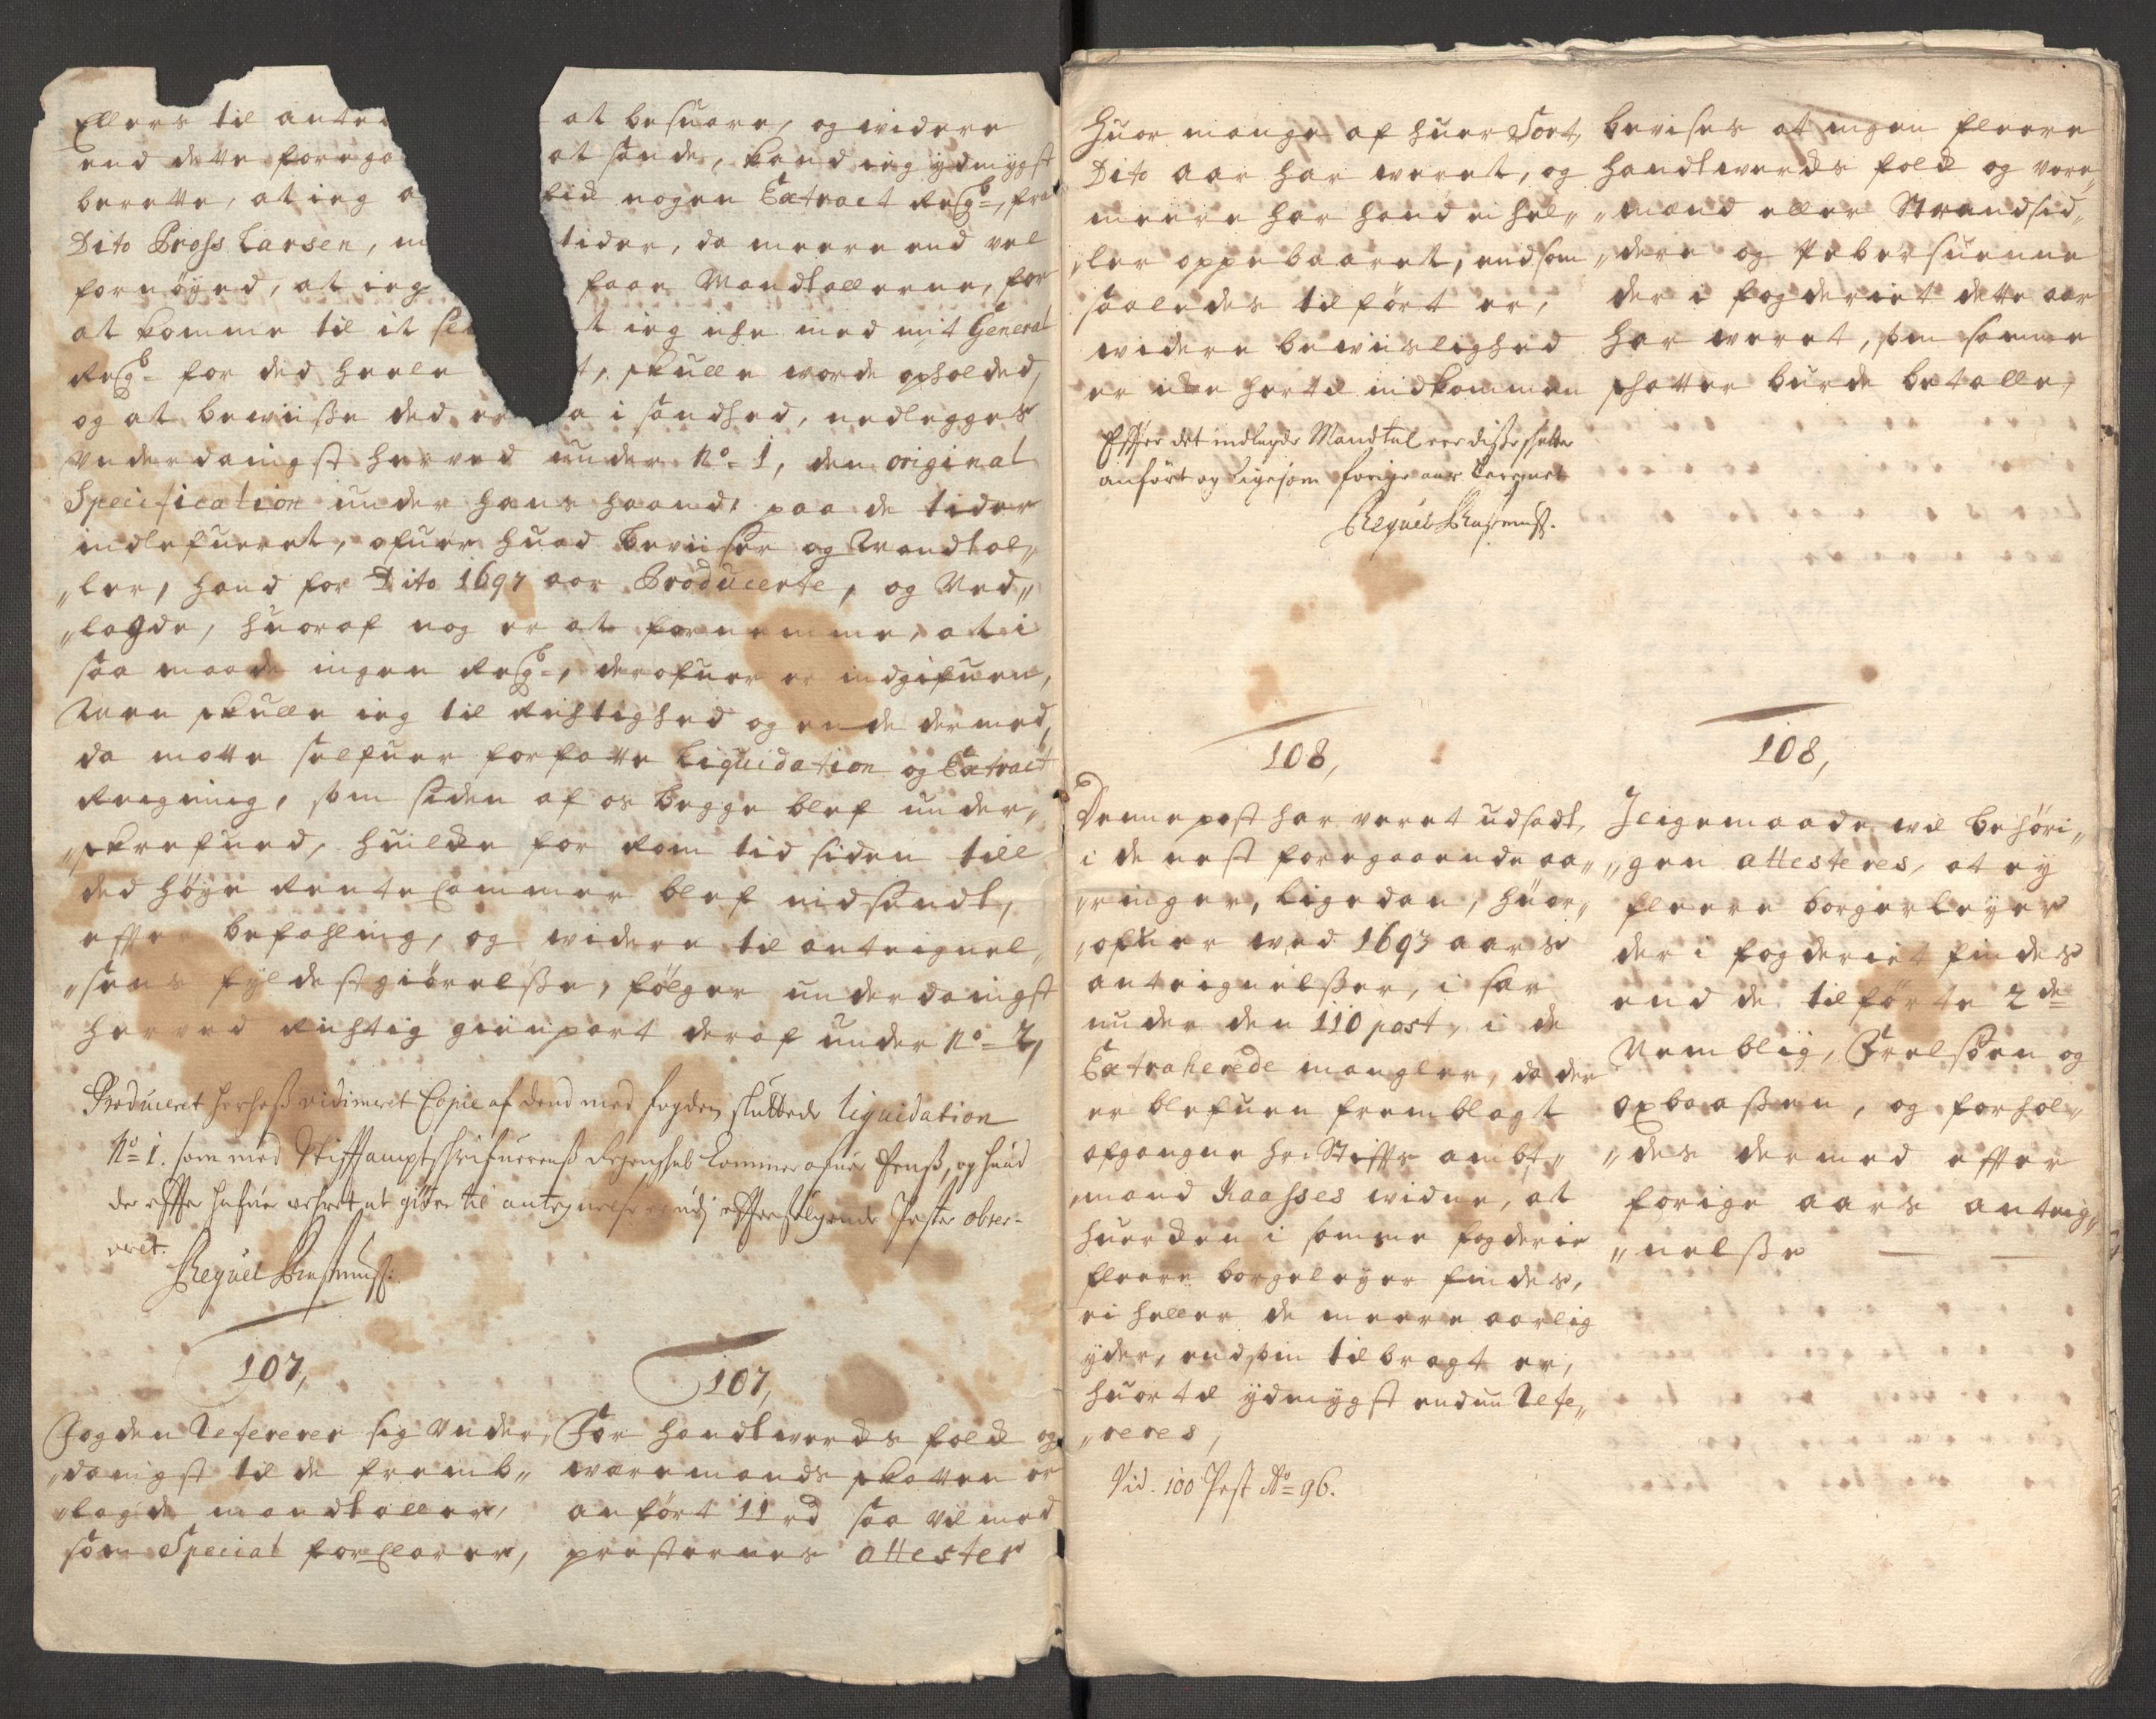 Ellers til ante at besuare, og widere
end dette forega at sande, kand ieg ydmygst
berette, at ieg a nogen Extract Resg, fra
Dito Bross Larsen, tider, da meere end vel
fornöyed, at ieg faae Mandtallerne, for
at komme til it t ieg iche med mit General
Resg for ded heele t, skulle worde opholded,
og at bewiisse ded er a i sandhed, nedlegges
Underdanigst herved under No 1, den original
Specification under hans haand, paa de tider
indlefueret, ofuer huad Beviiser og Mandtal„
„ler, hand for Dito 1697 aar Producerte, og Ved„
„lagde, huoraf nog er at fornemme, at i
saa maade ingen Resg, derofuer er indgifuen,
Men skulle ieg til Richtighed og ende dermed,
da motte selfuer forfatte Liquidation og Extract
Reigning, som siden af os begge blef under„
„skrefued, huilcke for kom tid siden till
ded höye RenteCammer blef nidsendt,
effter befahling, og widere til anteignel„
„sens fyldestgiörelsse, fölger underdanigst
herved Richtig gienpart deraf under No 2,
Produceret herhoss vidimeret Copie af dend med fogden sluttede liquidation
No 1. som med Stifftampt schrifuerenss Regenschab kommer ofuer Eenss, og huad
der effter hafuer werhret at giöre til antegnelse er udj efftterfölgende Poster obser-
veret.
107,
Fogden Refererer sig Under„
„danigst til de fremb„
„lagde mandtaller,
som Special forclarer,
107,
For handtwercks folck og
waremands skatten er
anfört 11 rd saa vil med
presternes attester
Huor mange af huer Sort,
Dito aar har weret, og
meere har hand ei hel„
„ler oppebaaret, end som
saaledes tilfört er,
widere bewiislighed
er icke hertil indkommen
Effter det indlagde Mandtal ere disse schatter
anfört og ligesom forige aar beregnet
bevises at ingen fleere
handtwercks folck og vare„
„mænd eller Strandsid„
„dere og Pebersuenne
der i fogderiet dette aar
har weret, som samme
schatter burde betalle,
108,
Denne post har veret udsadt,
i de nest foregaaende aa„
„ringer, ligedan, huor„
„ofuer wed 1693 aars
anteignelsser, i sær
under den 110 post, i de
Extraherede mangler, da der
er blefuen fremblagt
afgangne hr. Stiffts ambt„
„mand Kaasses widne, at
huercken i samme fogderie
fleere borgeleyer findes,
ei heller de meere aarlig
yder, end som tilbragt er,
huortil ydmygst endnu Refe„
„reres,
Vid. 100 Post No 96.
108,
J ligemaade wil behöri„
„gen attesteres, at ey
fleere borgerleyer
der i fogderiet findes
end de tilförte 2de
Nemblig, Frelssöen og
oxbaassen, og forhol„
„des dermed effter
forige aars anteig„
„nelsse